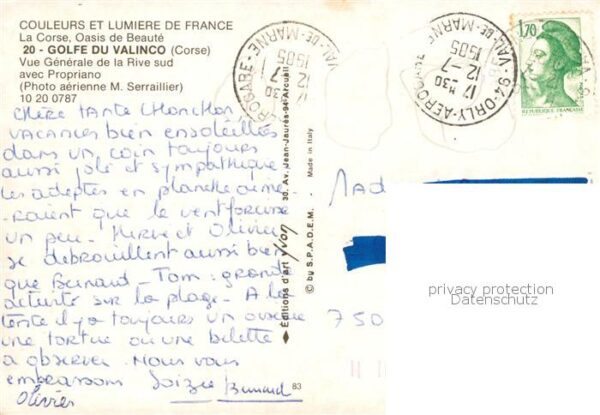 COULEURS ET LUMIERE DE FRANCE
La Corse, Oasis de Beauté
20 - GOLFE DU VALINCO (Corse)
Vue Générale de la Rive sud
avec Propriano
(Photo aérienne M. Serraillier)
10 20 0787
chère tante Chonchon
vacances bien ensoleillées
dans un coin toujours
aussi joli et sympathique
les adeptes en planche aime-
raient que le vent forcisse
un peu - Hervé et Olivier
se debrouillent aussi bien
que Bernard - Tom : grande
détente sur la plage - A la
il y a toujours un oiseau
une tortue ou une belette
a observer. Nous vous
embrassons Soizic Bernard
Olivier
83
Editions d'art Yvon
30, Av. Jean-Jaurès-94-Arcueil
© by S.P.A.D.E.M.
Made in Italy
94-ORLY-AEROGARE
VAL-DE-MARNE
17 H 30
12-7
1985
94-ORLY-AEROGARE
VAL-DE-MARNE
17 H 30
12-7
1985
1,70
REPUBLIQUE FRANÇAISE
Mad
750
privacy protection
Datenschutz